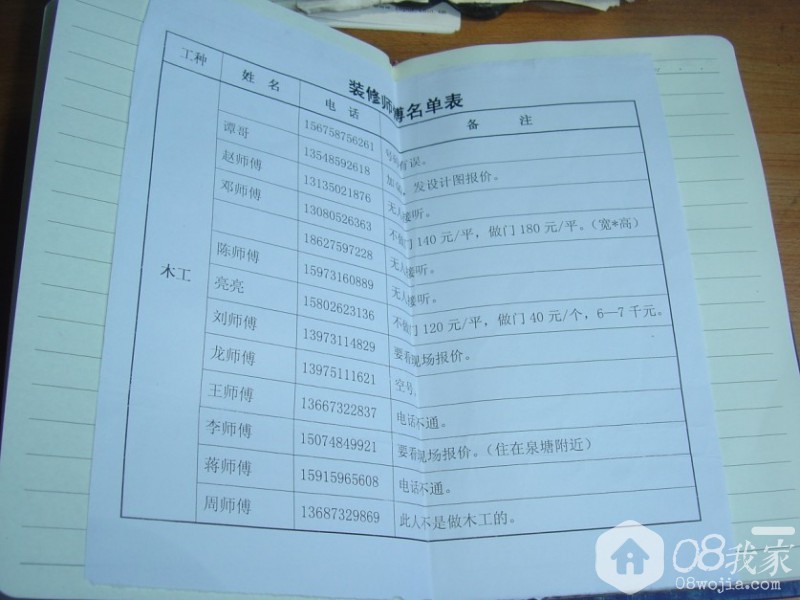 装修师傅名单表
工种 姓名 电话 备注
156758756261 号码有误。
谭哥 13548592618 发设计图报价。
赵师傅 13135021876 无人接听。
邓师傅 13080526363 不做门140元/平，做门180元/平。（宽*高）
18627597228 无人接听。
陈师傅 15973160889 无人接听。
木工
亮亮 15802623136 不做门120元/平，做门40元/个，6—7千元。
刘师傅 13973114829 要看现场报价。
龙师傅 13975111621 空号，
王师傅 13667322837 电话不通。
李师傅 15074849921 要看现场报价。（住在泉塘附近）
蒋师傅 15915965608 电话不通。
周师傅 13687329869 此人不是做木工的。
08我家
08wojia.com